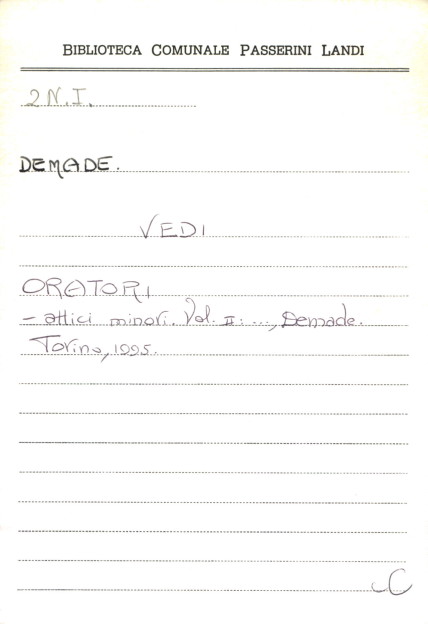 BIBLIOTECA COMUNALE PASSERINI LANDI
2N.I.
DEMADE.
VEDI
ORATORI
- attici minori. Vol. II: ..., Demade.
Torino, 1995.
C